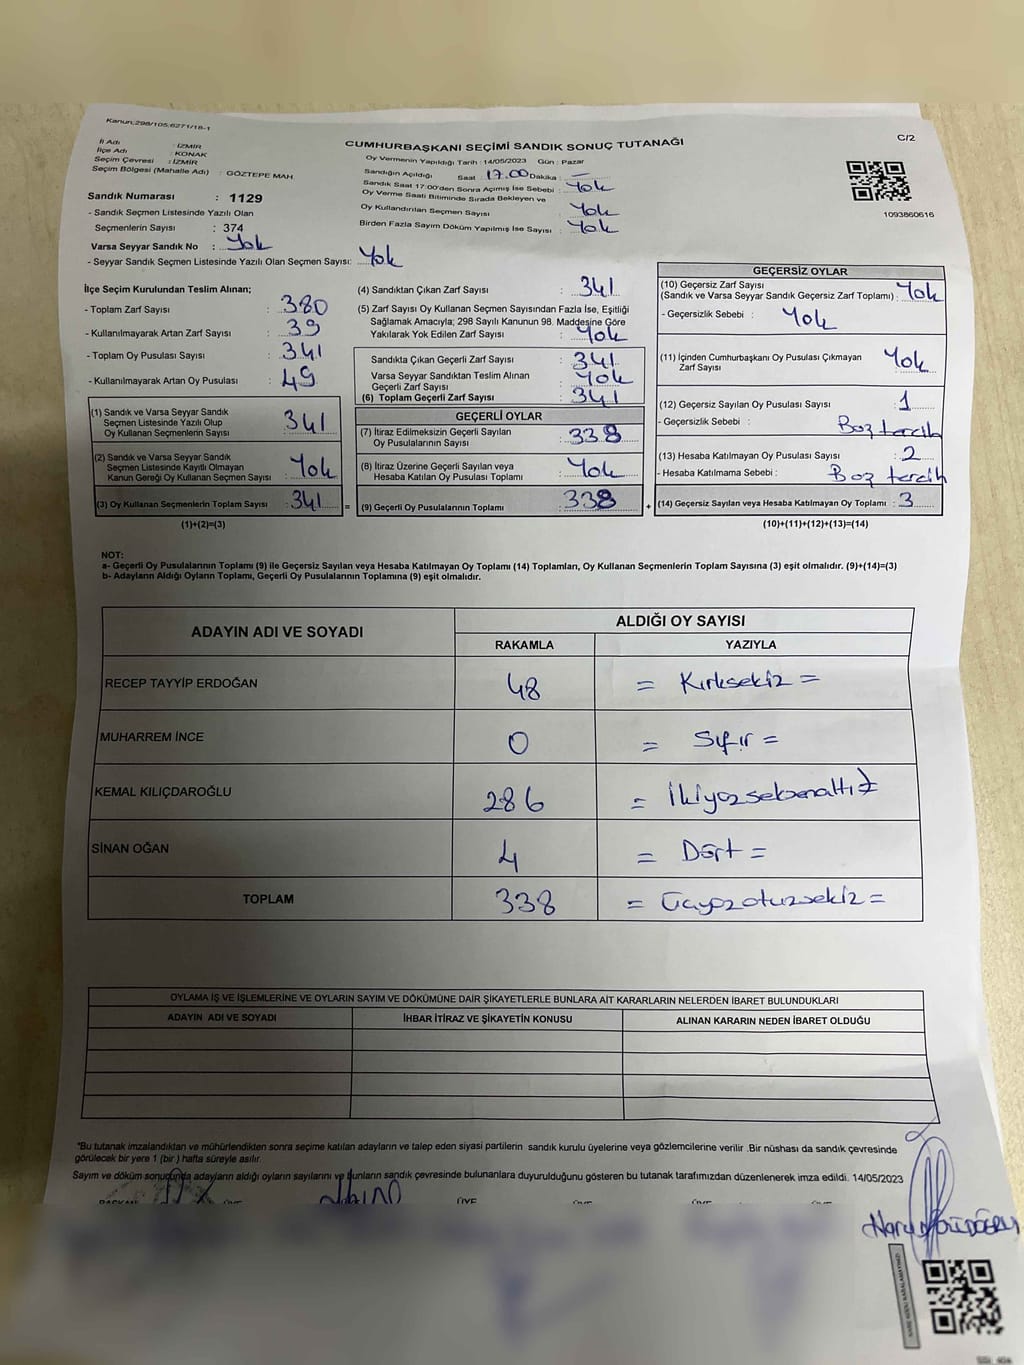 Kanun;298/105;6271/18-1
C/2
CUMHURBAŞKANI SEÇİMİ SANDIK SONUÇ TUTANAĞI
İl Adı : İZMİR
İlçe Adı : KONAK
Seçim Çevresi : İZMİR
Seçim Bölgesi (Mahalle Adı) : GÖZTEPE MAH
Oy Vermenin Yapıldığı Tarih : 14/05/2023 Gün : Pazar
Sandığın Açıldığı Saat : 17.00 Dakika : —
Sandık Saat 17:00'den Sonra Açımış İse Sebebi : Yok
Oy Verme Saati Bitiminde Sırada Bekleyen ve
Oy Kullandırılan Seçmen Sayısı : Yok
Birden Fazla Sayım Döküm Yapılmış İse Sayısı : Yok
1093860616
Sandık Numarası : 1129
- Sandık Seçmen Listesinde Yazılı Olan
Seçmenlerin Sayısı : 374
Varsa Seyyar Sandık No : Yok
- Seyyar Sandık Seçmen Listesinde Yazılı Olan Seçmen Sayısı: Yok
İlçe Seçim Kurulundan Teslim Alınan;
- Toplam Zarf Sayısı : 380
- Kullanılmayarak Artan Zarf Sayısı : 39
- Toplam Oy Pusulası Sayısı : 341
- Kullanılmayarak Artan Oy Pusulası : 49
(1) Sandık ve Varsa Seyyar Sandık
Seçmen Listesinde Yazılı Olup
Oy Kullanan Seçmenlerin Sayısı : 341
(2) Sandık ve Varsa Seyyar Sandık
Seçmen Listesinde Kayıtlı Olmayan
Kanun Gereği Oy Kullanan Seçmen Sayısı : Yok
(3) Oy Kullanan Seçmenlerin Toplam Sayısı : 341 =
(1)+(2)=(3)
(4) Sandıktan Çıkan Zarf Sayısı : 341
(5) Zarf Sayısı Oy Kullanan Seçmen Sayısından Fazla İse, Eşitliği
Sağlamak Amacıyla; 298 Sayılı Kanunun 98. Maddesine Göre
Yakılarak Yok Edilen Zarf Sayısı : Yok
Sandıkta Çıkan Geçerli Zarf Sayısı : 341
Varsa Seyyar Sandıktan Teslim Alınan
Geçerli Zarf Sayısı : Yok
(6) Toplam Geçerli Zarf Sayısı : 341
GEÇERLİ OYLAR
(7) İtiraz Edilmeksizin Geçerli Sayılan
Oy Pusulalarının Sayısı : 338
(8) İtiraz Üzerine Geçerli Sayılan veya
Hesaba Katılan Oy Pusulası Toplamı : Yok
(9) Geçerli Oy Pusulalarının Toplamı : 338 +
GEÇERSİZ OYLAR
(10) Geçersiz Zarf Sayısı
(Sandık ve Varsa Seyyar Sandık Geçersiz Zarf Toplamı) : Yok
- Geçersizlik Sebebi : Yok
(11) İçinden Cumhurbaşkanı Oy Pusulası Çıkmayan
Zarf Sayısı : Yok
(12) Geçersiz Sayılan Oy Pusulası Sayısı : 1
- Geçersizlik Sebebi : Boz tercih
(13) Hesaba Katılmayan Oy Pusulası Sayısı : 2
- Hesaba Katılmama Sebebi : Boz tercih
(14) Geçersiz Sayılan veya Hesaba Katılmayan Oy Toplamı : 3
(10)+(11)+(12)+(13)=(14)
NOT:
a- Geçerli Oy Pusulalarının Toplamı (9) ile Geçersiz Sayılan veya Hesaba Katılmayan Oy Toplamı (14) Toplamları, Oy Kullanan Seçmenlerin Toplam Sayısına (3) eşit olmalıdır. (9)+(14)=(3)
b- Adayların Aldığı Oyların Toplamı, Geçerli Oy Pusulalarının Toplamına (9) eşit olmalıdır.
ADAYIN ADI VE SOYADI ALDIĞI OY SAYISI
RAKAMLA YAZIYLA
RECEP TAYYİP ERDOĞAN 48 = Kırksekiz =
MUHARREM İNCE 0 = Sıfır =
KEMAL KILIÇDAROĞLU 286 = İkiyüzseksenaltı =
SİNAN OĞAN 4 = Dört =
TOPLAM 338 = Üçyüzotuzsekiz =
OYLAMA İŞ VE İŞLEMLERİNE VE OYLARIN SAYIM VE DÖKÜMÜNE DAİR ŞİKAYETLERLE BUNLARA AİT KARARLARIN NELERDEN İBARET BULUNDUKLARI
ADAYIN ADI VE SOYADI İHBAR İTİRAZ VE ŞİKAYETİN KONUSU ALINAN KARARIN NEDEN İBARET OLDUĞU
*Bu tutanak imzalandıktan ve mühürlendikten sonra seçime katılan adayların ve talep eden siyasi partilerin sandık kurulu üyelerine veya gözlemcilerine verilir .Bir nüshası da sandık çevresinde
görülecek bir yere 1 (bir ) hafta süreyle asılır.
Sayım ve döküm sonucunda adayların aldığı oyların sayılarını ve bunların sandık çevresinde bulunanlara duyurulduğunu gösteren bu tutanak tarafımızdan düzenlenerek imza edildi. 14/05/2023
BAŞKAN ÜYE ÜYE ÜYE ÜYE ÜYE